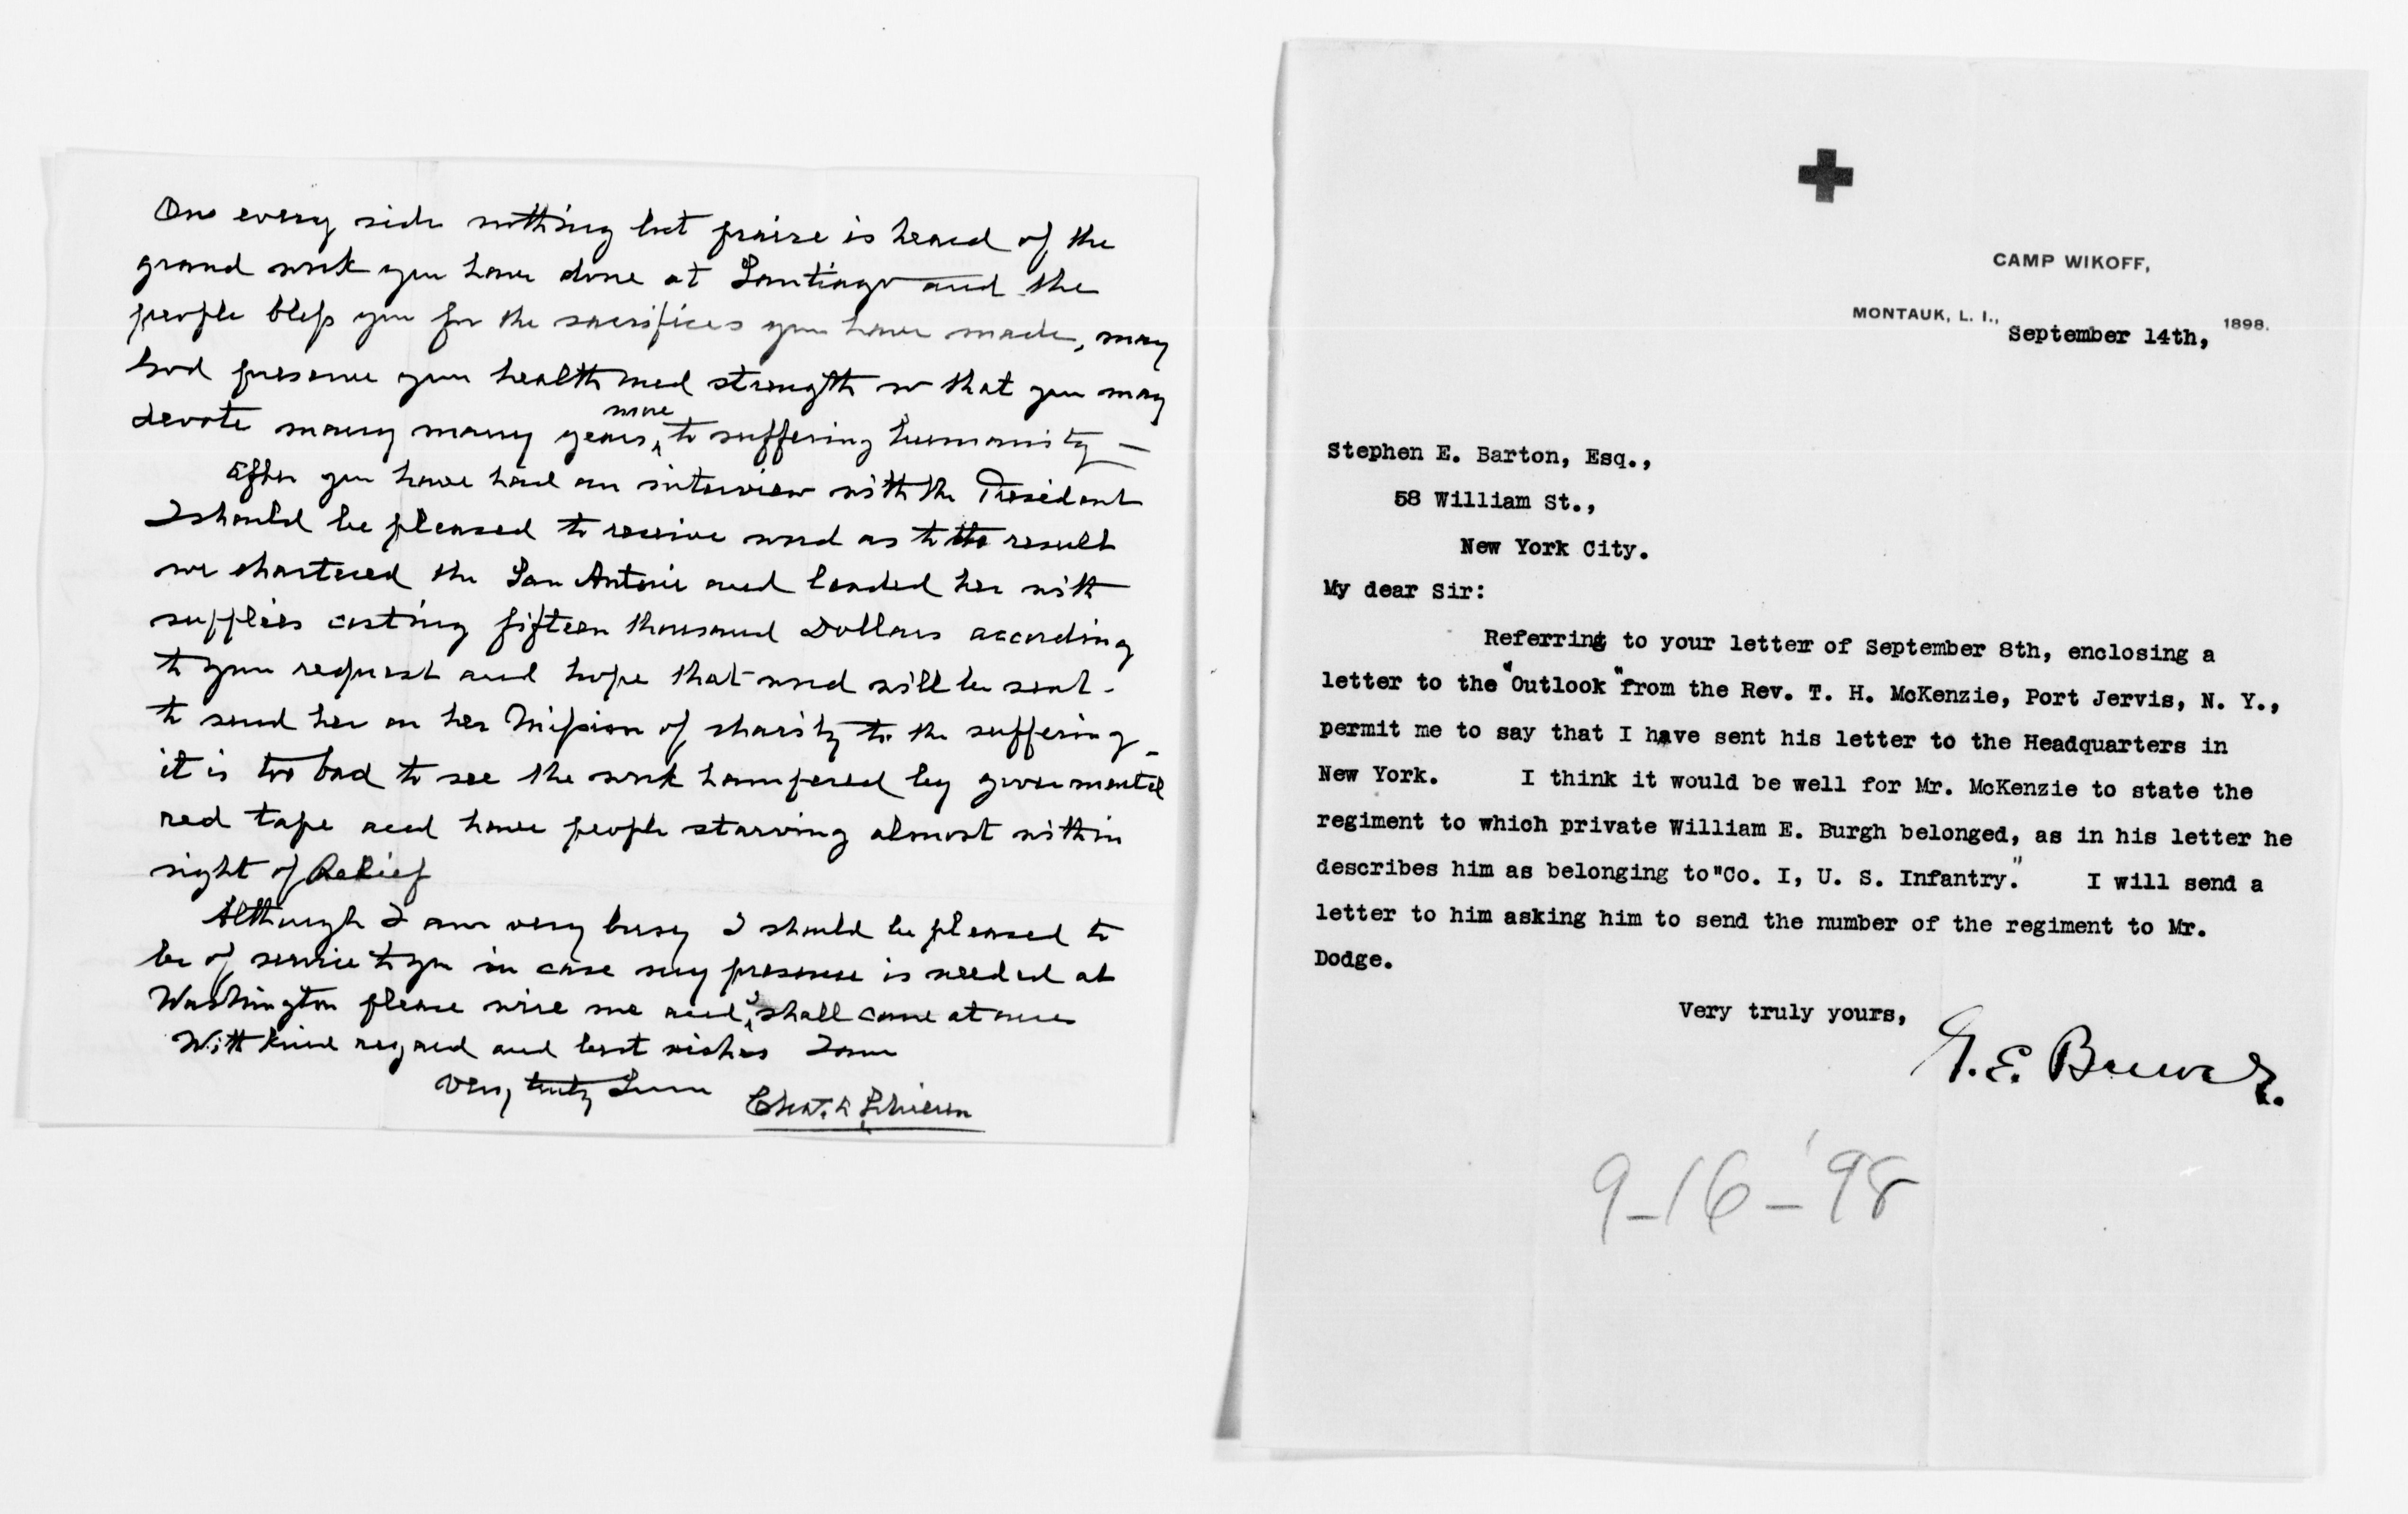 One every side nothing but praise is heard of the
grand work you have done at Santiago and the
people bless you for the sacrifices you have made, may
God preserve your health and strength so that you may
devote many many years more to suffering humanity —
After you have had an interview with the President
I should be pleased to receive word as to the result
we chartered the San Antonio and loaded her with
supplies costing fifteen thousand Dollars according
to your request and hope that word will be sent
to send her on her Mission of charity to the suffering –
it is too bad to see the work hampered by govermental
red tape and have people starving almost within
sight of Relief
Although I am very busy I should be pleased to
be of service to you in case my presence is needed at
Washington please wire me and I shall come at once
With kind regard and best wishes I am
Very truly
CAMP WIKOFF,
MONTAUK, L. I., September 14th, 1898.
Stephen E. Barton, Esq.,
58 William St.,
New York City.
My dear Sir:
Referring to your letter of September 8th, enclosing a
letter to the "Outlook" from the Rev. T. H. McKenzie, Port Jervis, N. Y.,
permit me to say that I have sent his letter to the Headquarters in
New York. I think it would be well for Mr. McKenzie to state the
regiment to which private William E. Burgh belonged, as in his letter he
describes him as belonging to "Co. I, U. S. Infantry." I will send a
letter to him asking him to send the number of the regiment to Mr.
Dodge.
Very truly yours,
G. E. Brewer.
9-16-'98